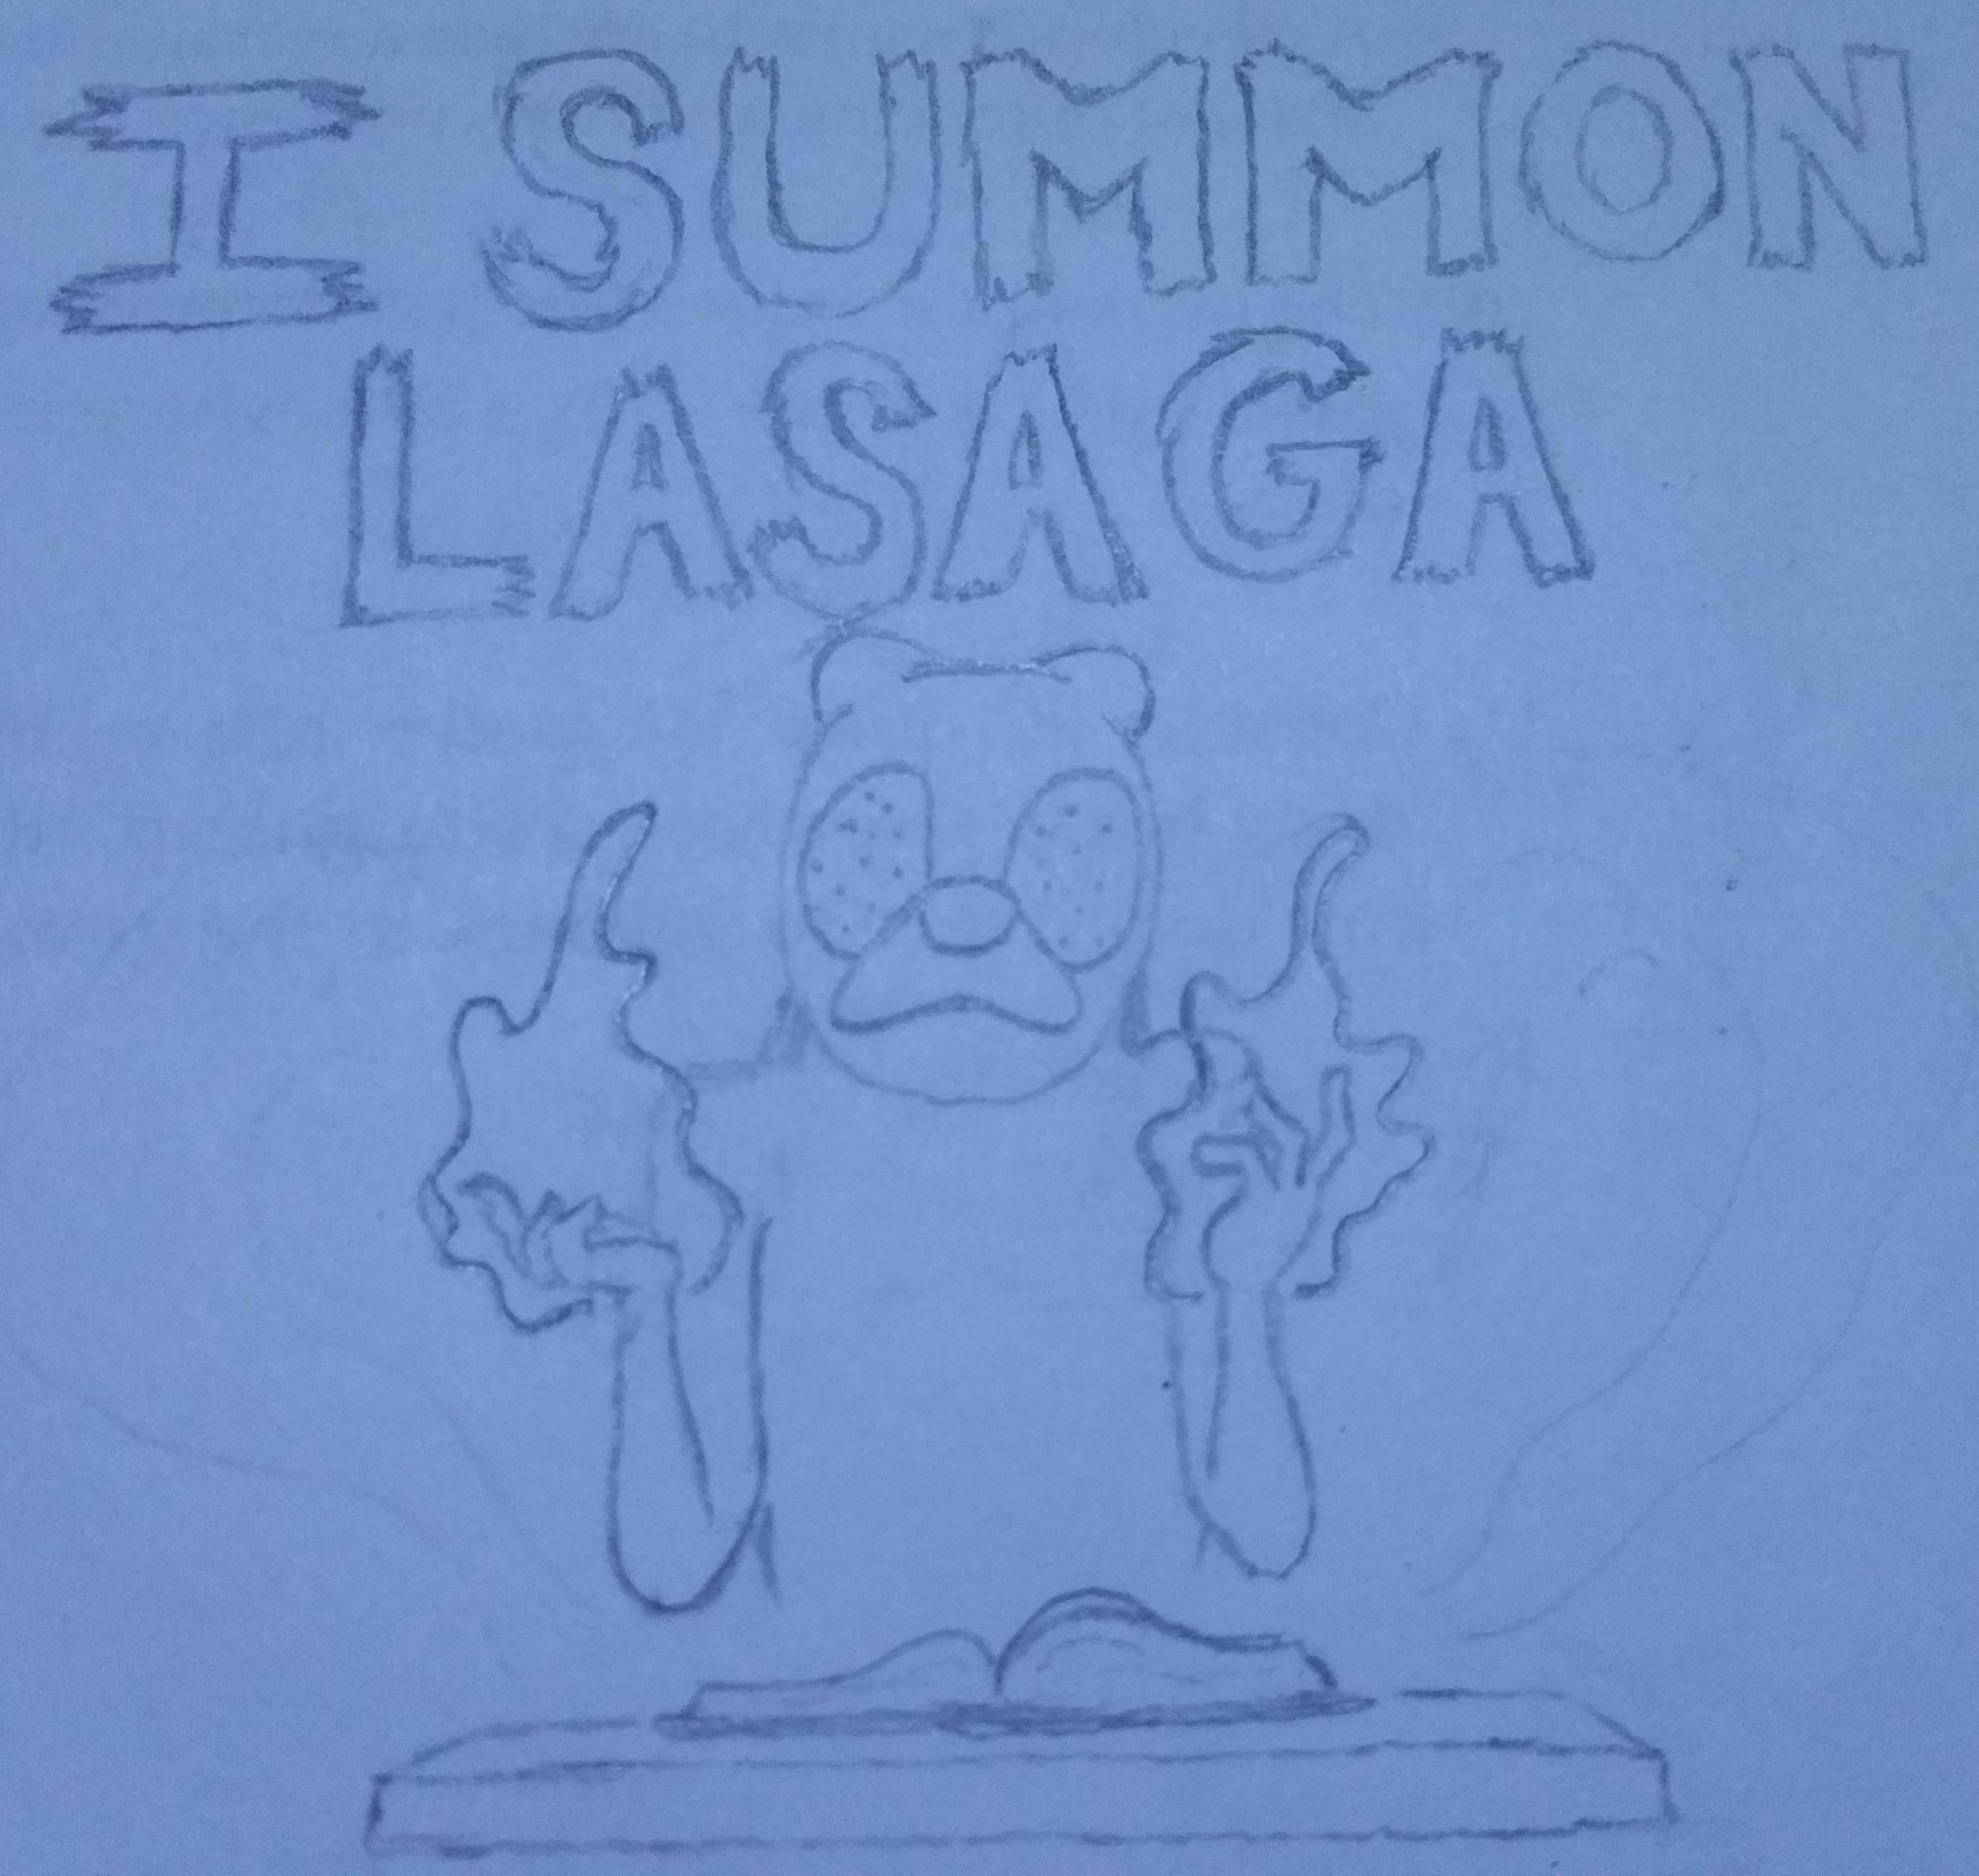 I SUMMON
LASAGA